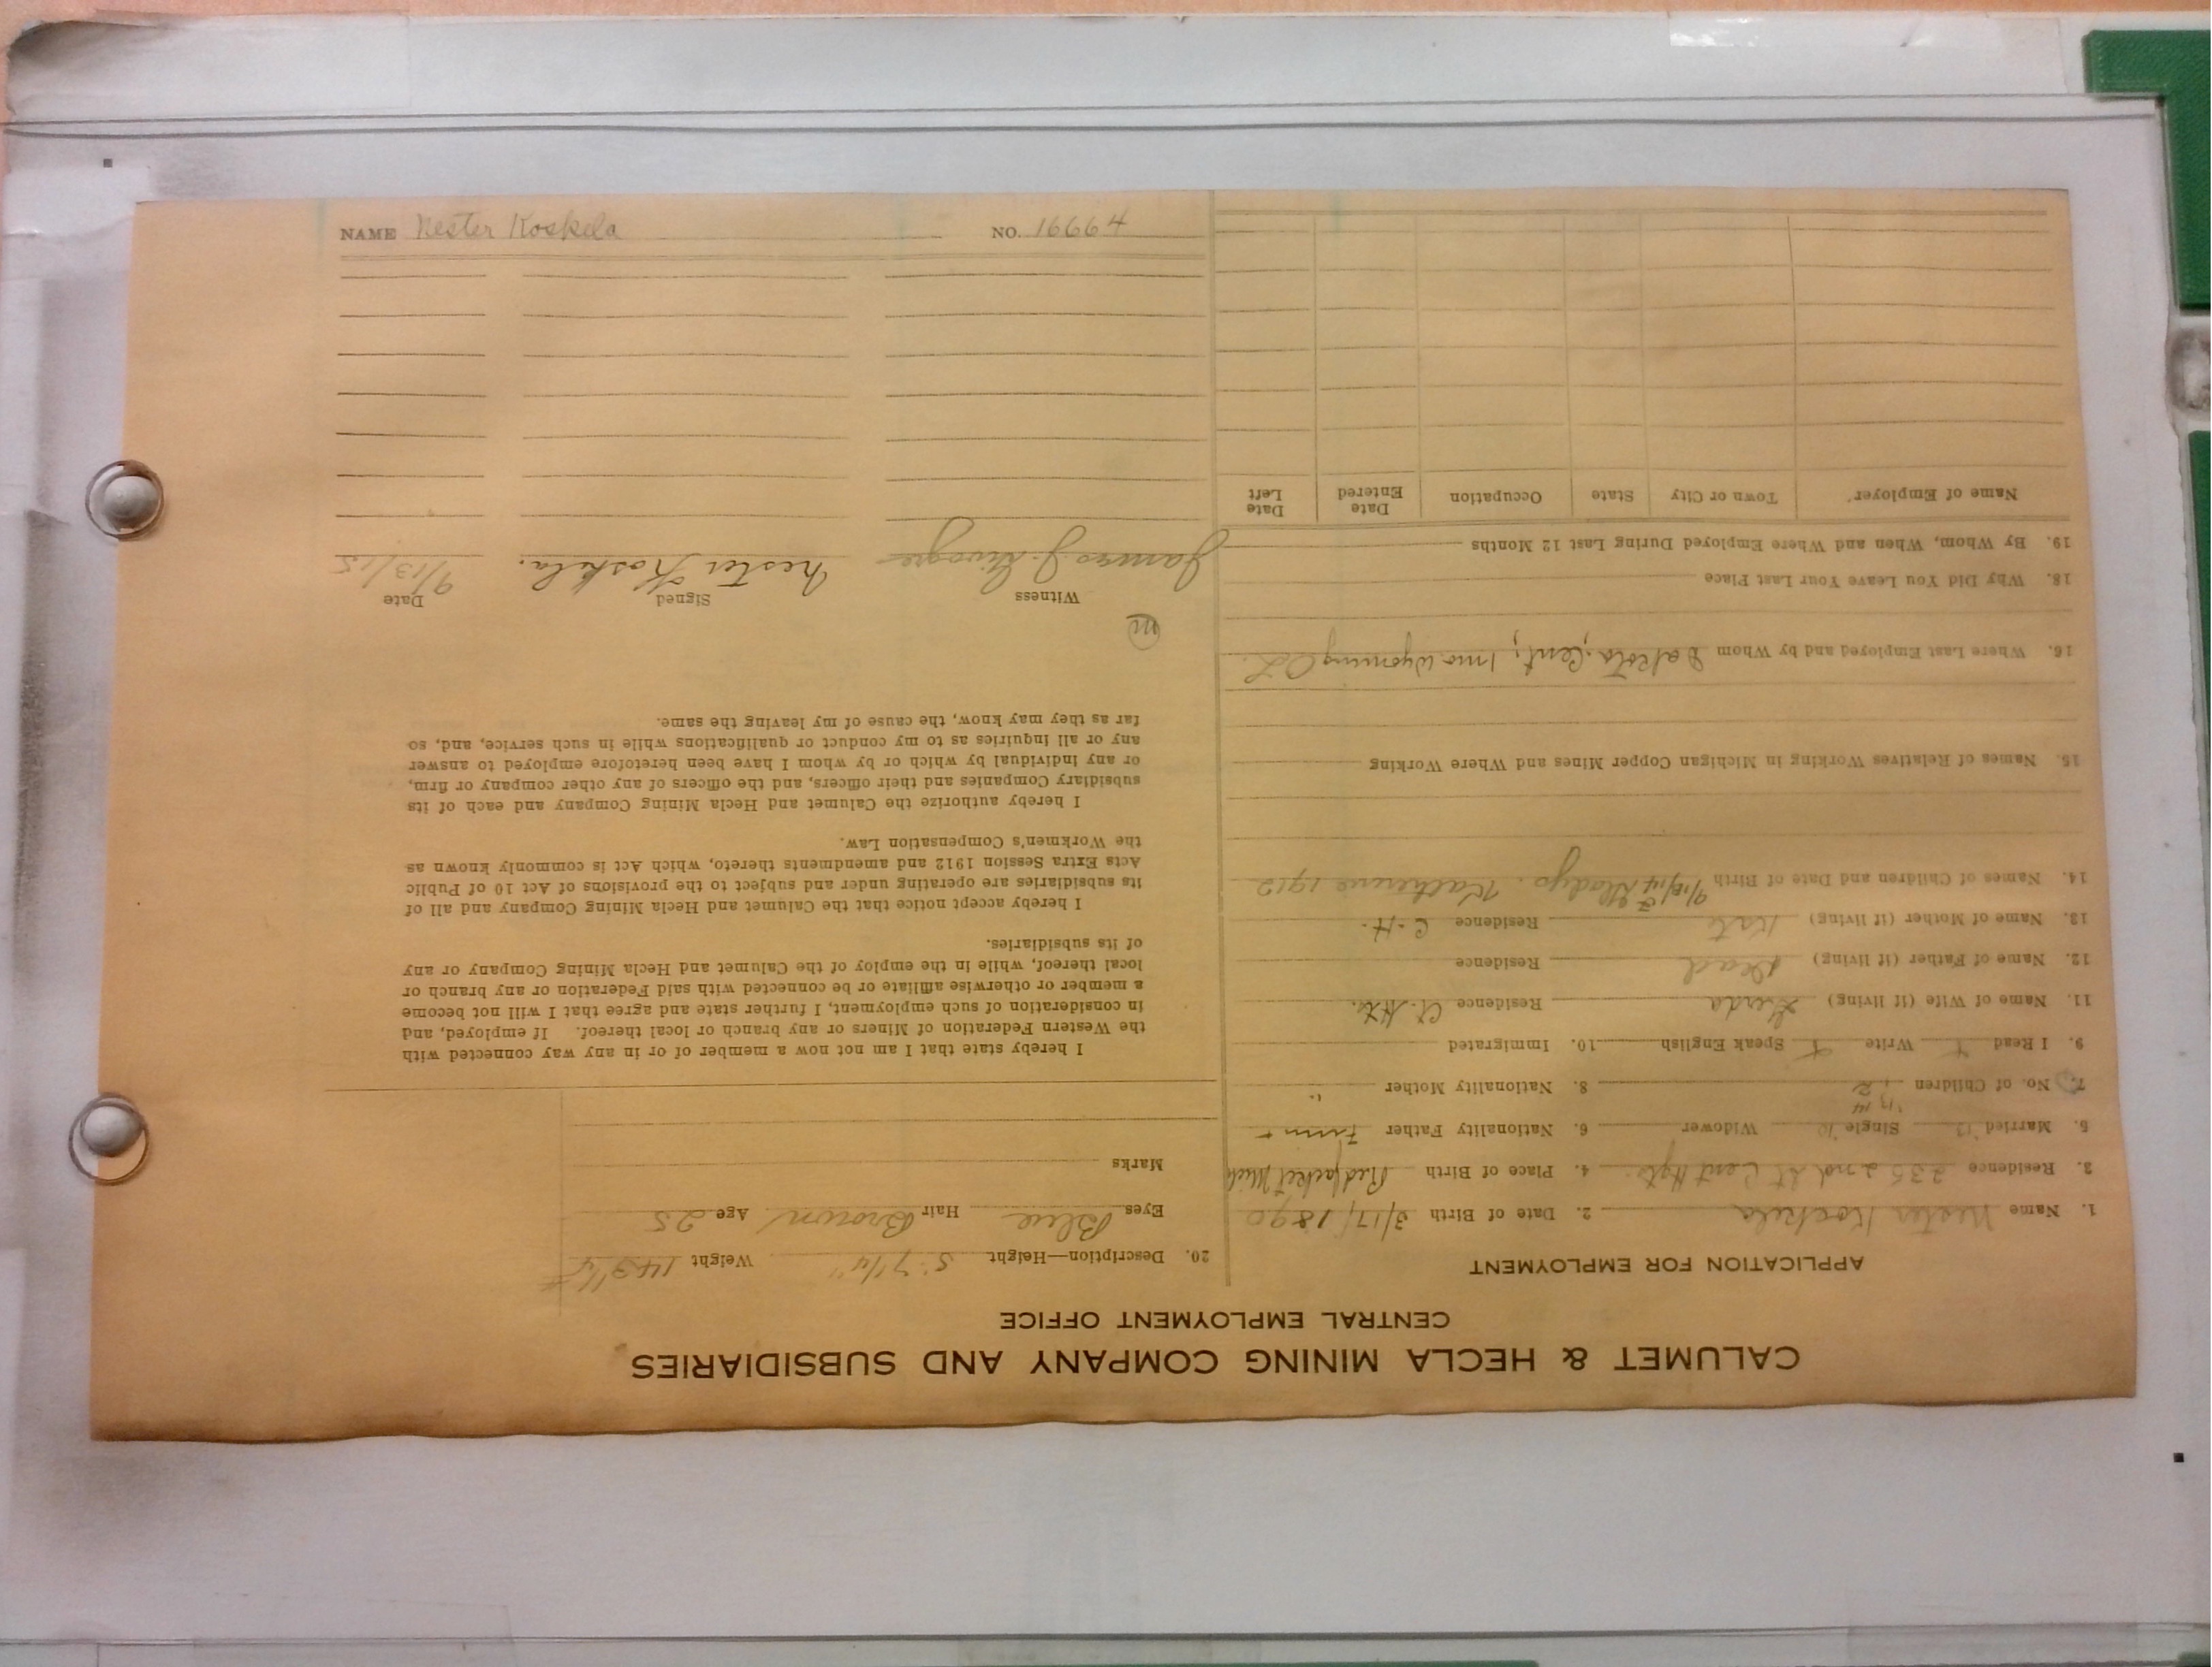 CALUMET & HECLA MINING COMPANY AND SUBSIDIARIES
CENTRAL EMPLOYMENT OFFICE
APPLICATION FOR EMPLOYMENT
1. Name Nester Koskela 2. Date of Birth 3/17/1890
3. Residence 235 2nd St Cent Hgts. 4. Place of Birth Red Jacket Mich
5. Married '13 Single '10 Widower 6. Nationality Father Finn
'13 14
7. No. of Children 2 8. Nationality Mother "
9. I Read Write Speak English 10. Immigrated
11. Name of Wife (if living) Residence
12. Name of Father (if living) Dead Residence
13. Name of Mother (if living) Kate Residence C.H.
14. Names of Children and Date of Birth 9/18/14 Gladys. Katherine 1912
15. Names of Relatives Working in Michigan Copper Mines and Where Working
16. Where Last Employed and by Whom Dakota, Cent; 1 mo. Wyoming
18. Why Did You Leave Your Last Place
19. By Whom, When and Where Employed During Last 12 Months
Name of Employer Town or City State Occupation Date Entered Date Left
20. Description—Height 5' 7 1/4" Weight 143 1/4 #
Eyes Blue Hair Brown Age 25
Marks
I hereby state that I am not now a member of or in any way connected with
the Western Federation of Miners or any branch or local thereof. If employed, and
in consideration of such employment, I further state and agree that I will not become
a member or otherwise affiliate or be connected with said Federation or any branch or
local thereof, while in the employ of the Calumet and Hecla Mining Company or any
of its subsidiaries.
I hereby accept notice that the Calumet and Hecla Mining Company and all of
its subsidiaries are operating under and subject to the provisions of Act 10 of Public
Acts Extra Session 1912 and amendments thereto, which Act is commonly known as
the Workmen's Compensation Law.
I hereby authorize the Calumet and Hecla Mining Company and each of its
subsidiary Companies and their officers, and the officers of any other company or firm,
or any individual by which or by whom I have been heretofore employed to answer
any or all inquiries as to my conduct or qualifications while in such service, and, so
far as they may know, the cause of my leaving the same.
m
Witness Signed Date
James J. Nester Koskela. 9/13/15
NAME Nester Koskela NO. 16664